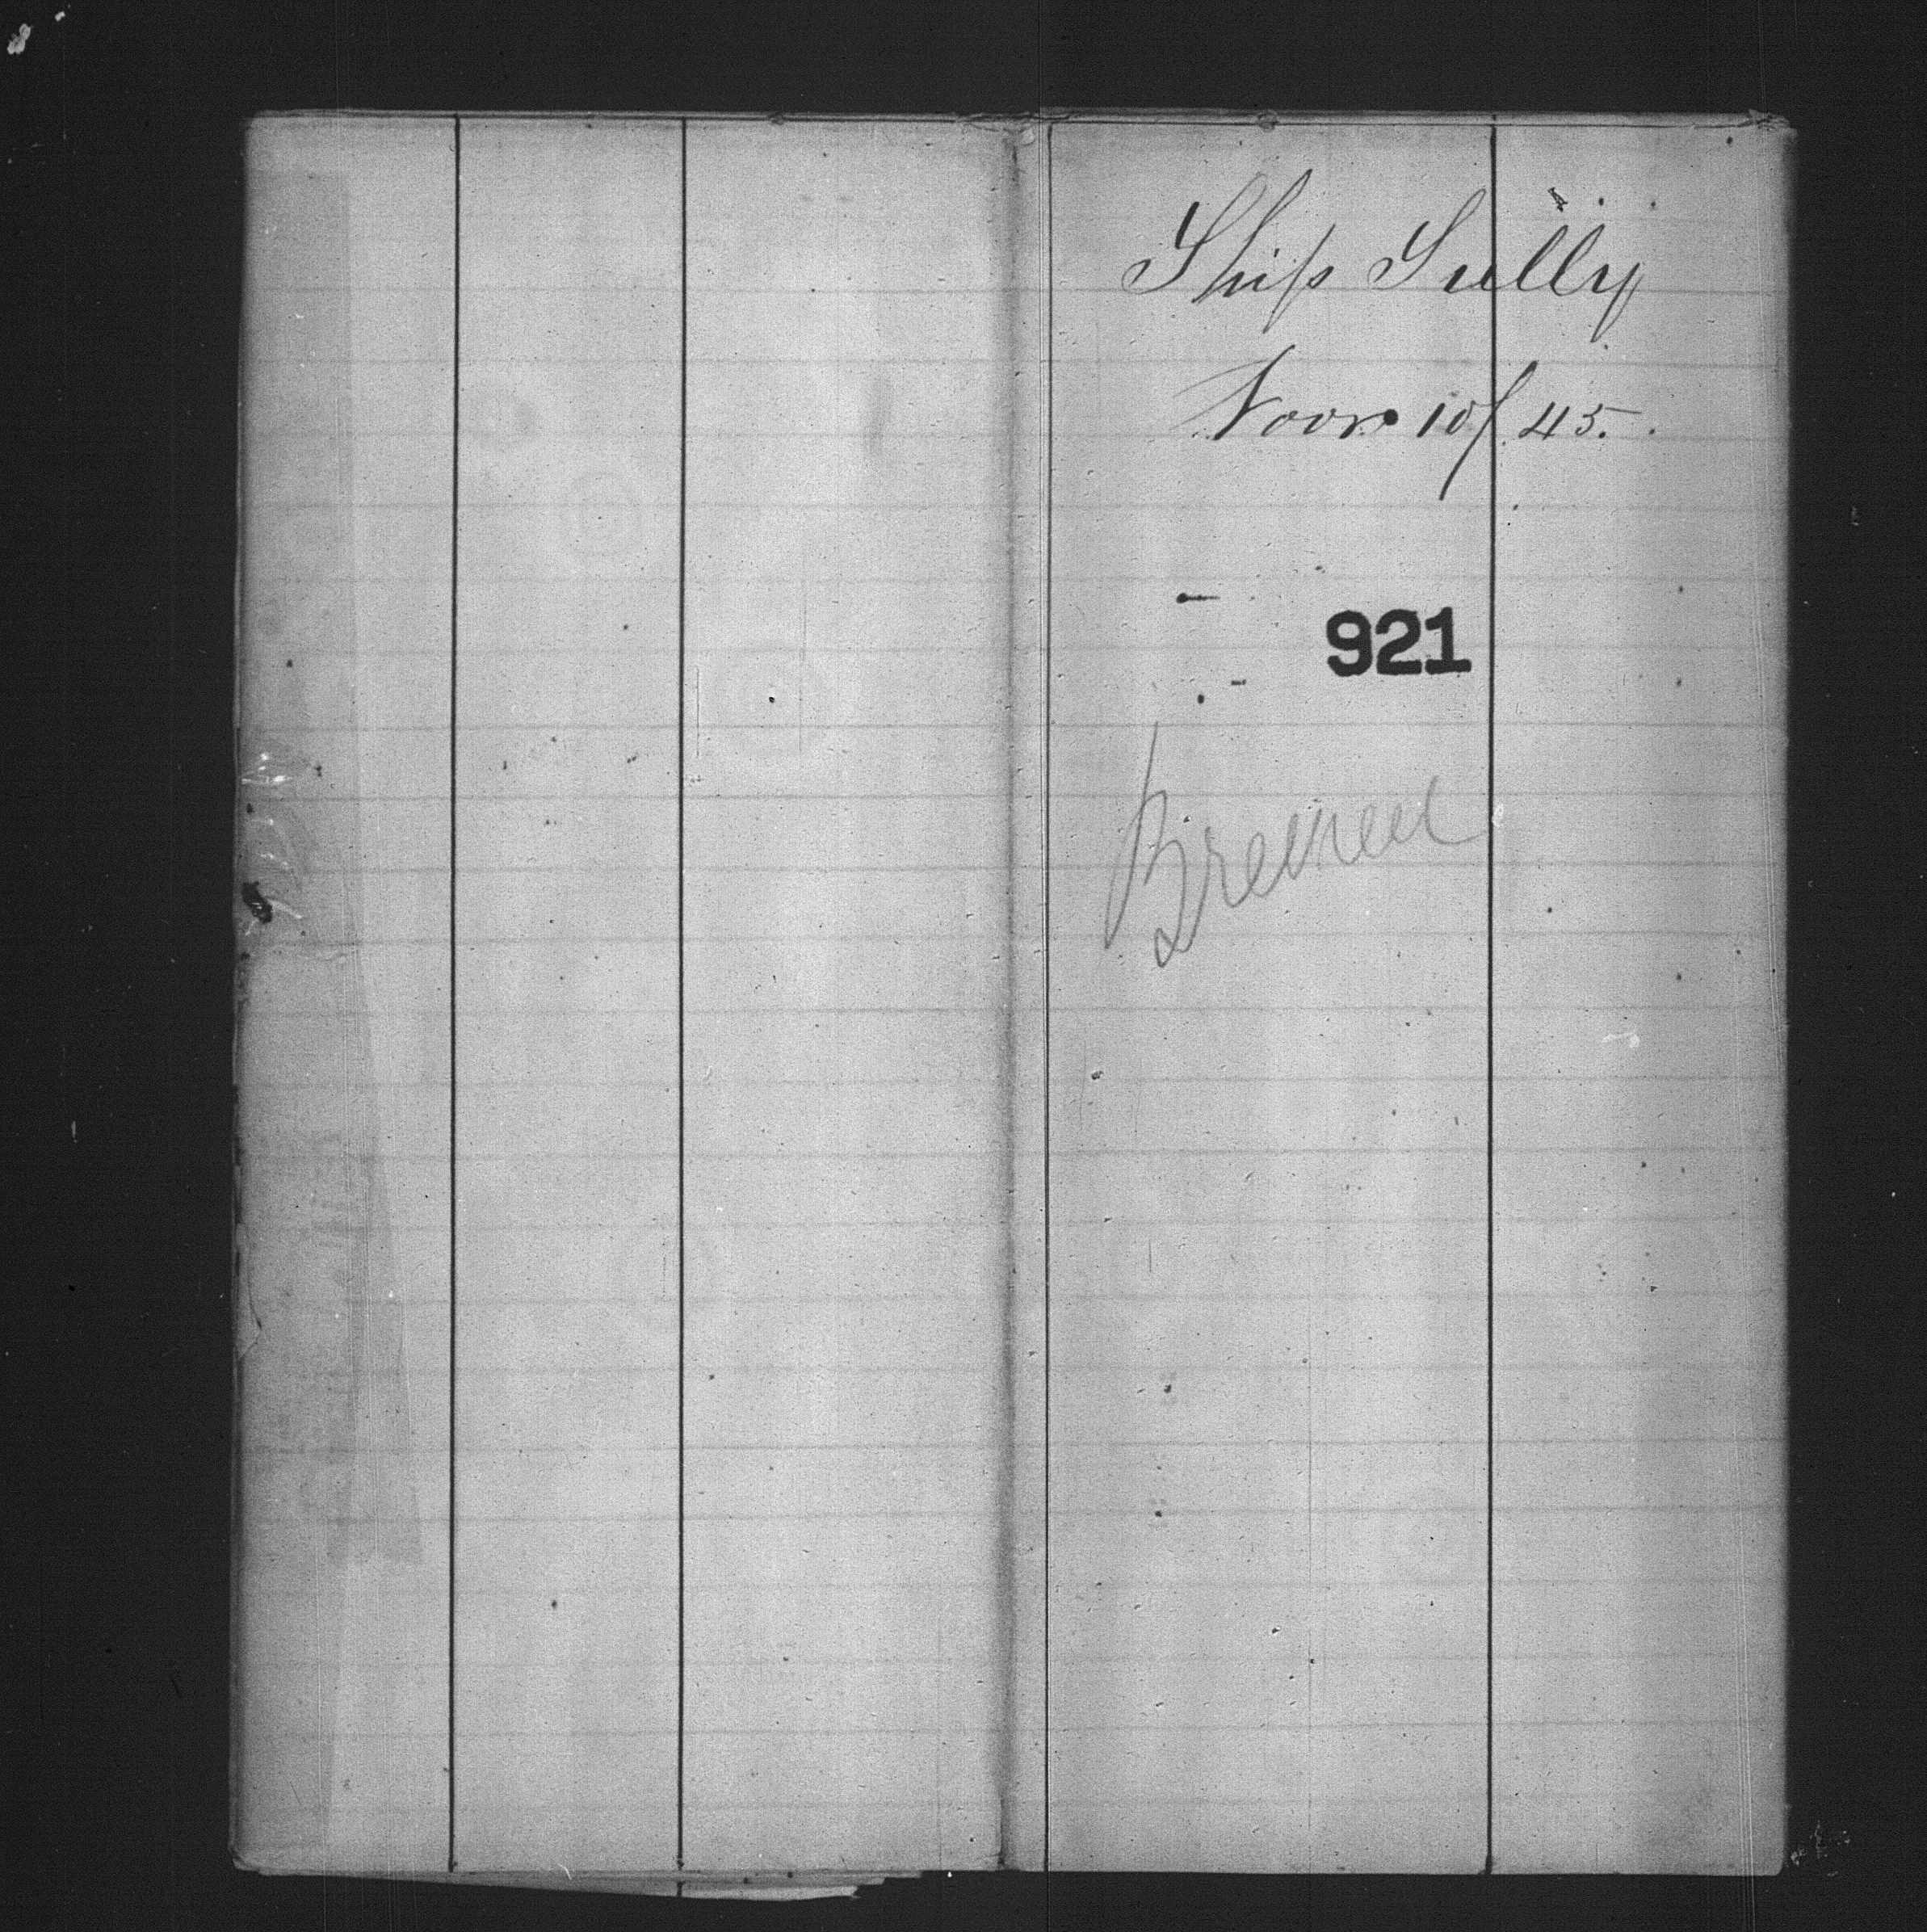 Ship Sully
Novr 10/45.
921
Bremen